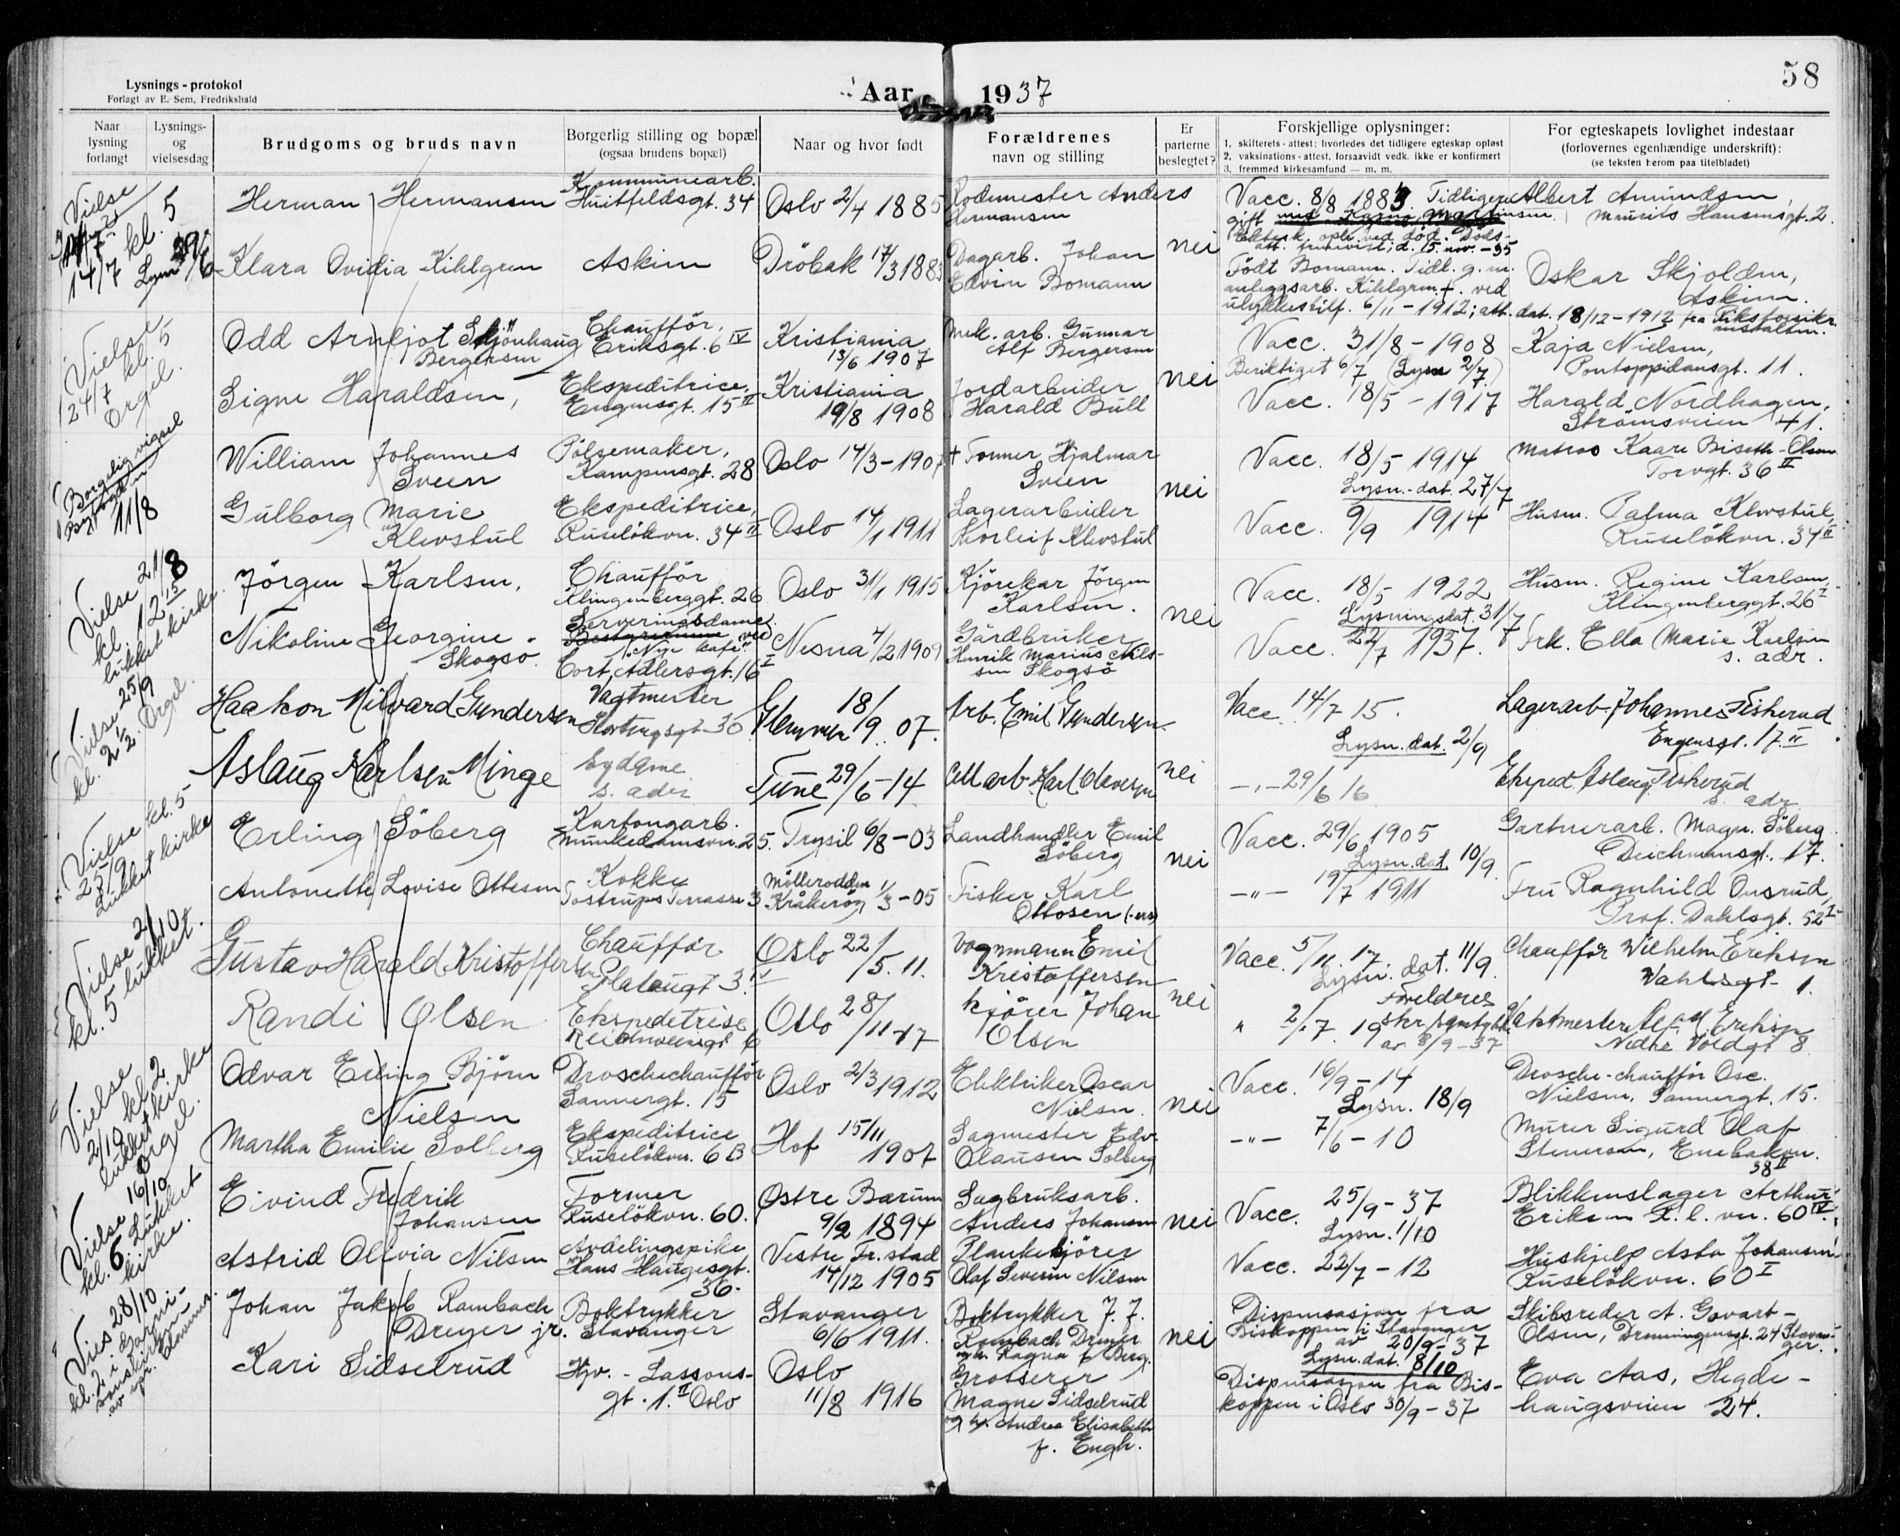 58
Lysnings-protokol
Forlagt av E. Sem, Fredrikshald
Aar 1937
Naar lysning forlangt
Lysnings- og vielsesdag
Brudgoms og bruds navn
Borgerlig stilling og bopæl (ogsaa brudens bopæl)
Naar og hvor født
Forældrenes navn og stilling
Er parterne beslegtet?
Forskjellige oplysninger:
1. skifterets-attest: hvorledes det tidligere egteskap opløst
2. vaksinations-attest, forsaavidt vedk. ikke er konfirmert
3. fremmed kirkesamfund — m. m.
For egteskapets lovlighet indestaar
(forlovernes egenhændige underskrift):
(se teksten herom paa titelbladet)
Vielse
14/7 kl. 5
Lysn 29/6
Herman Hermansen
Kommunearb.
Huitfeldsgt. 34
Oslo 2/4 1885
Rodemester Anders
Hermansen
nei
Vacc. 8/8 1883. Tidligere
gift med Ragna Martinsen
Ektesk. opl. ved död. Döds-
att. d. 15. nov. -35
Albert Amundsen,
Maurits Hansensgt. 2.
Klara Ovidia Kihlgren
Askim
Dröbak 17/3 1883
Dagarb. Johan
Edvin Bomann
Födt Bomann. Tidl. g. m.
anleggsarb. Kihlgren. +. ved
ulykkestilf. 6/11 - 1912; att. dat. 18/12 - 1912 fra Riksforsikr.
anstalten.
Oskar Skjolden,
Askim.
Vielse
24/7 kl. 5
Orgel.
Odd Arnljot Skjönhaug
Bergersen
Chaufför,
Eriksgt. 6 IV
Kristiania
13/6 1907
Mek. arb. Gunnar
Alf Bergersen
nei
Vacc. 31/8 - 1908
Beriktiget 6/7 (Lysn 2/7)
Kaja Nielsen,
Pontoppidansgt. 11.
Signe Haraldsen,
Ekspeditrice,
Engensgt. 15 II
Kristiania
19/8 1908
Jordarbeider
Harald Bull
Vacc. 18/5 - 1917
Harald Nordhagen,
Strömsveien 41.
Borgerlig vigsel
11/8
William Johannes
Sveen
Pölsemaker,
Kampensgt. 28
Oslo 14/3 - 1907
+ Former Hjalmar
Sveen
nei
Vacc. 18/5 1914
Lysn.-dat. 27/7
Matros Kaare Biseth-Olsen
Torvgt. 36 II
Gulborg Marie
Klevstul
Ekspeditrice,
Ruselökvn. 34 II
Oslo 14/1 1911
Lagerarbeider
Thorleif Klevstul
Vacc. 9/9 1914
Husm. Palma Klevstul,
Ruselökvn. 34 II
Vielse 21/8
kl. 12 15
lukket kirke.
Jörgen Karlsen,
Chaufför
Klingenberggt. 26
Oslo 31/1 1915
Kjörekar Jörgen
Karlsen.
nei
Vacc. 18/5 1922
Lysningsdat. 31/7
Husm. Regine Karlsen,
Klingenberggt. 26 I
Nikoline Georgine
Skogsö
Serveringsdame
ved
"Nye kafé"
Cort Adlersgt. 16 I
Nesna 4/2 1909
Gårdbruker
Henrik Marius Nils-
sen Skogsö
Vacc. 22/7 1937.
Frk. Ella Marie Karlsen
s. adr.
Vielse 25/9
kl. 2 1/2. Orgel.
Haakon Milvard Gundersen
Vagtmester
Stortingsgt 30
Glemmen 18/9. 07.
Arb. Emil Gundersen
nei
Vacc. 14/7 15.
Lysn. dat. 2/9
Lagerarb. Johannes Fiskerud
Engensgt. 17 II
Aslaug Karlsen Minge
Sydame
s. adr
Tune 29/6 - 14
Cell arb Karl Olavesen
-"- 29/6 16
Eksped. Aslaug Fiskerud
s. adr
Vielse kl. 5
25/9
Lukket kirke
Erling Söberg
Kartongarb.
Munkedamsvn. 25.
Trysil 6/8 - 03
Landhandler Emil
Söberg
nei
Vacc. 29/6 1905
Lysn. dat. 10/9.
Gartnerarb. Magn. Söberg
Deichmansgt. 17.
Antonette Lovise Ottesen
Kokke
Tostrups Terrasse 3
Mölleroddn
Kråkeröy 1/3 - 05
Fisker Karl
Ottosen (-ers)
-"- 19/7 1911
Fru Ragnhild Onsrud,
Prof. Dahlsgt. 52 I
Vielse 2/10
kl. 5 lukket.
Gustav Harald Kristoffersen
Chaufför
Platougt 3 IV
Oslo 22/5. 11.
Vognmann Emil
Kristoffersen
nei
Vacc. 5/11. 17.
Lysn. dat. 11/9.
Chaufför Wilhelm Eriksen
Wahlsgt 1.
Randi Olsen
Ekspeditrise
Reichweinsgt 6
Oslo 28/11 17
Kjörer Johan
Olsen
" 2/7. 19
Foreldres
skr. samtykke
av 8/9 - 37
Vaktmester Eriksen
Nedre Voldgt 8
Vielse
2/10 kl. 2
lukket kirke
Orgel.
Odvar Erling Björn
Nielsen
Droschechaufför
Sannergt. 15
Oslo 2/3 1912
Elektriker Oscar
Nielsen.
nei
Vacc. 16/9 - 14
Lysn. 18/9
Drosche-chaufför Osc.
Nielsen, Sannergt. 15.
Martha Emilie Solberg
Ekspeditrice
Ruselökvn. 6 B
Hof 15/11
1907
Sagmester Edv.
Olausen Solberg
-"- 7/6 - 10
Murer Sigurd Olaf
Stenersen, Enebakvn.
38 II
Vielse 16/10
kl. 6. Lukket
kirke.
Eivind Fredrik
Johansen
Former
Ruselökvn. 60.
Östre Bærum
9/2 1894
Sagbruksarb.
Anders Johansen
nei
Vacc. 25/9 - 37
Lysn. 1/10
Blikkenslager Arthur
Eriksen R. l. vn. 60 IV.
Astrid Olivia Nilsen
Avdelingspike
Hans Haugesgt.
36.
Vestre Fr.stad
14/12 1905
Plankekjörer
Olaf Severin Nilsen
Vacc. 22/7 - 12
Hushjelp Asta Johansen
Ruselökvn. 60 I
Vies 28/10
kl. 2 i Garni-
sonskirken
av spr.
Johan Jakob Rambach
Dreyer jr.
Boktrykker
Stavanger
Stavanger
6/6 1911.
Boktrykker J. J.
Rambach Dreyer
og h. Ragna f. Berg.
nei
Dispensasjon fra
Biskoppen i Stavanger
av 20/9 - 37
Lysn. dat. 8/10
Skibsreder A. Gowart-
Olsen, Dronningensgt. 24 Stavan-
ger.
Kari Sidselrud
Hjv. - Lassons-
gt. 1. II Oslo
Oslo
11/8 1916
Grosserer
Magne Sidselrud
og h. Andrea Elisabeth
f. Engh.
Dispensasjon fra Bis-
koppen i Oslo 30/9 - 37
Eva Aas, Hegde-
haugsveien 24.